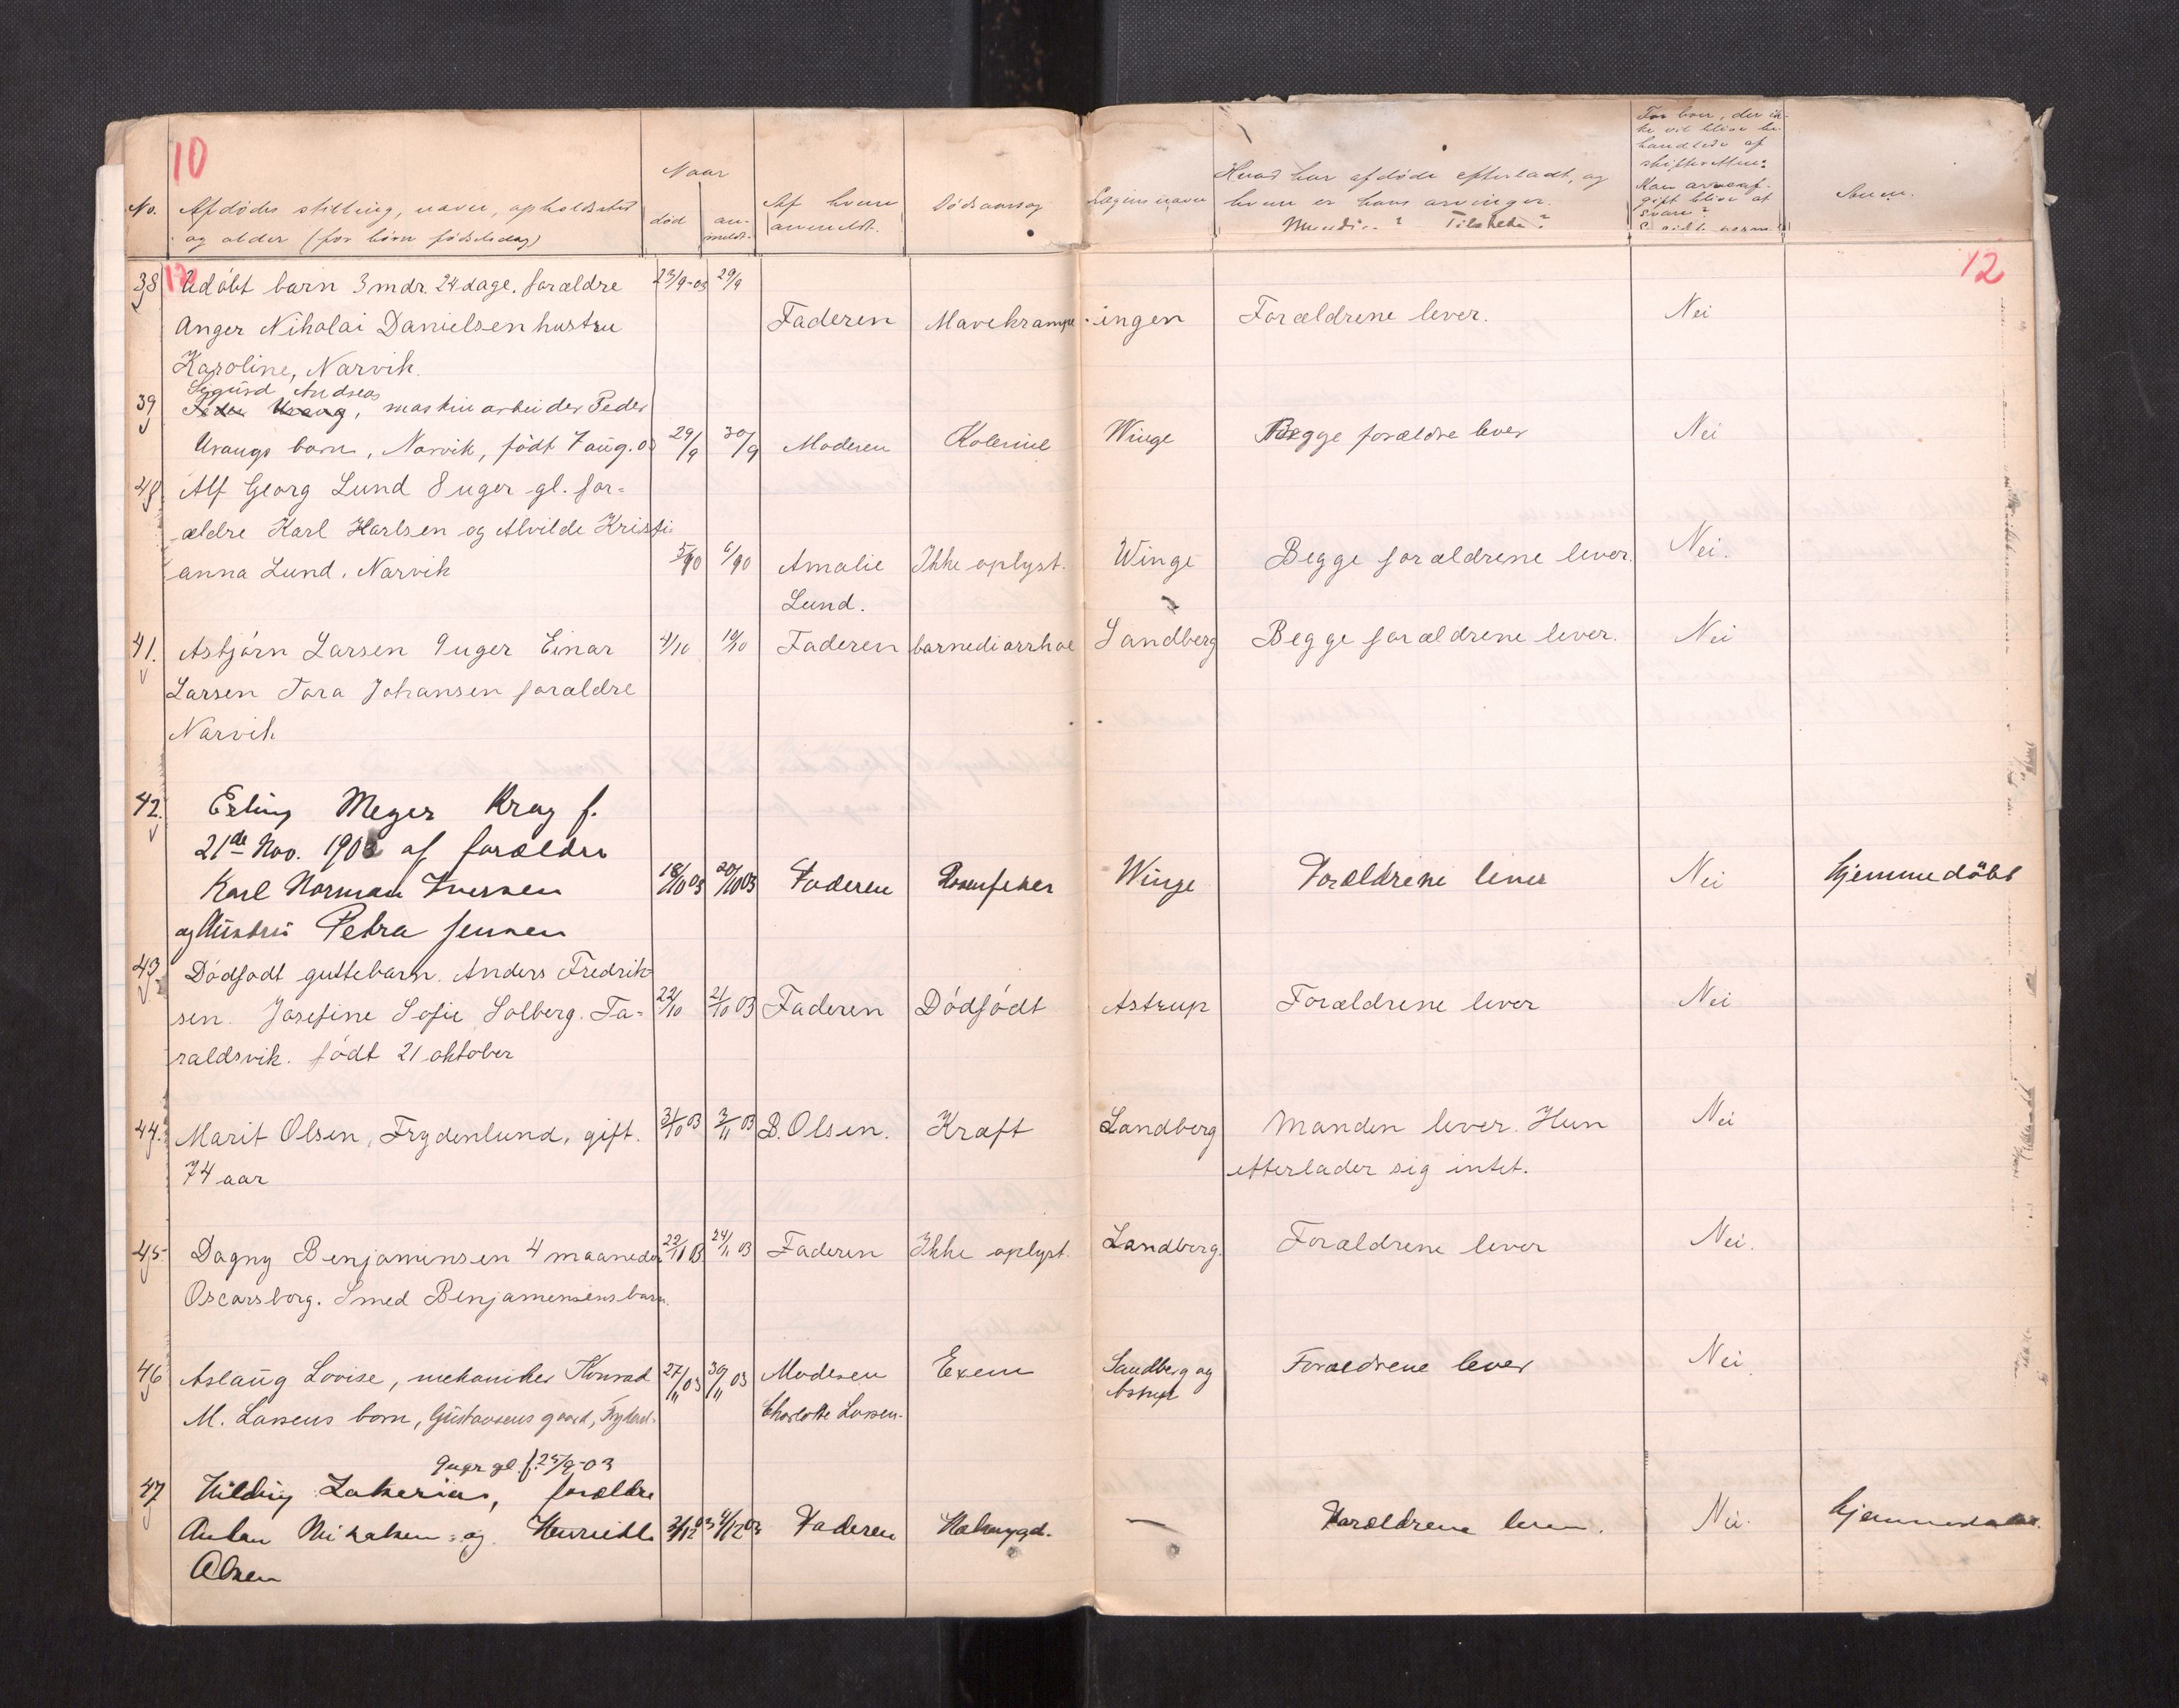 10
No.
Afdødes stilling, navn, opholdssted
og alder (for børn fødselsdag)
Naar
død
an-
meldt.
Af hvem
anmeldt.
Dødsaarsag
Lægens navn
Hvad har afdøde efterladt, og
hvem er hans arvinger.
Myndige? Tilstede?
For boer, der ik-
ke vil blive be-
handlede af
skifteretten:
Kan arveaf-
gift blive at
svare?
Anm.
12
38 Udöbt barn 3 mdr. 24 dage. forældre 23/9-03 29/9
Anger Nikolai Danielsen hustru Faderen Mavekrampe ingen Forældrene lever. Nei
Karoline, Narvik.
Sigurd Andreas
39 Peder Urang, maskinarbeider Peder
Urangs barn, Narvik, födt 7 aug. 03 29/9 30/9 Moderen Kolerine Winge Begge forældre lever Nei
40 Alf Georg Lund 8 uger gl. for=
ældre Karl Karlsen og Alvilde Kristi
anna Lund. Narvik 5/10 6/10 Amalie Ikke oplyst. Winge Begge forældrene lever. Nei.
Lund.
41. Asbjörn Larsen 9 uger Einar 4/10 10/10 Faderen barnediarrhoe Sandberg Begge forældrene lever. Nei
Larsen Tora Johansen forældre
Narvik
42. Erling Meyer Krag f.
21de Nov. 1902 af forældre
Karl Norman Iversen 18/10 03 20/10 03 Faderen Winge Forældrene lever Nei hjemmedöbt
og Hustru Petra Jensen
43. Dödfödt guttebarn. Anders Fredrik=
sen. Josefine Sofie Solberg. Ta= 22/10 21/10 03 Faderen Dödfödt Astrup Forældrene lever Nei
raldsvik. födt 21 oktober
44. Marit Olsen, Frydenlund, gift. 31/10 03 3/11 03 B. Olsen. Kræft Sandberg Manden lever. Hun Nei
74 aar efterlader sig intet.
45 Dagny Benjaminsen 4 maaneder 22/11 03 24/11 03 Faderen Ikke oplyst. Sandberg. Forældrene lever Nei.
Oscarsborg. Smed Benjamensens barn.
46 Aslaug Lovise, mekaniker Konrad 27/11 03 30/11 03 Moderen Exem Sandberg og Forældrene lever Nei.
M. Lassens barn, Gustavsens gaard, Frydenl. Charlotte Lassen. Astrup
9 uger gl. f. 25/9-03
47 Hilding Zakerias, forældre
Anton Mikalsen og Henriette 2/12 03 4/12 03 Faderen — Forældrene lever. Nei.
Olsen